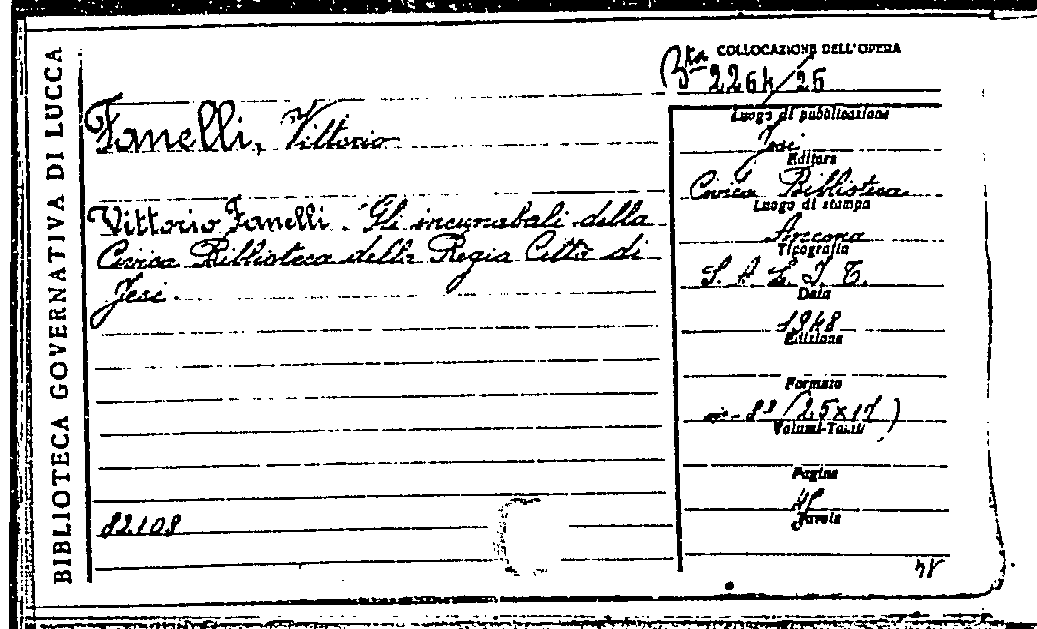 BIBLIOTECA GOVERNATIVA DI LUCCA
COLLOCAZIONE DELL'OPERA
Bta 2264/26
Fanelli, Vittorio
Vittorio Fanelli. Gli incunabali della
Civica Biblioteca della Regia Città di
Jesi.
82108
Luogo di pubblicazione
Jesi
Editore
Civica Biblioteca
Luogo di stampa
Ancona
Tipografia
S. A. E. I. T.
Data
1948
Edizione
Formato
in-8° (25x17)
Volumi-Tomi
Pagine
Tavole